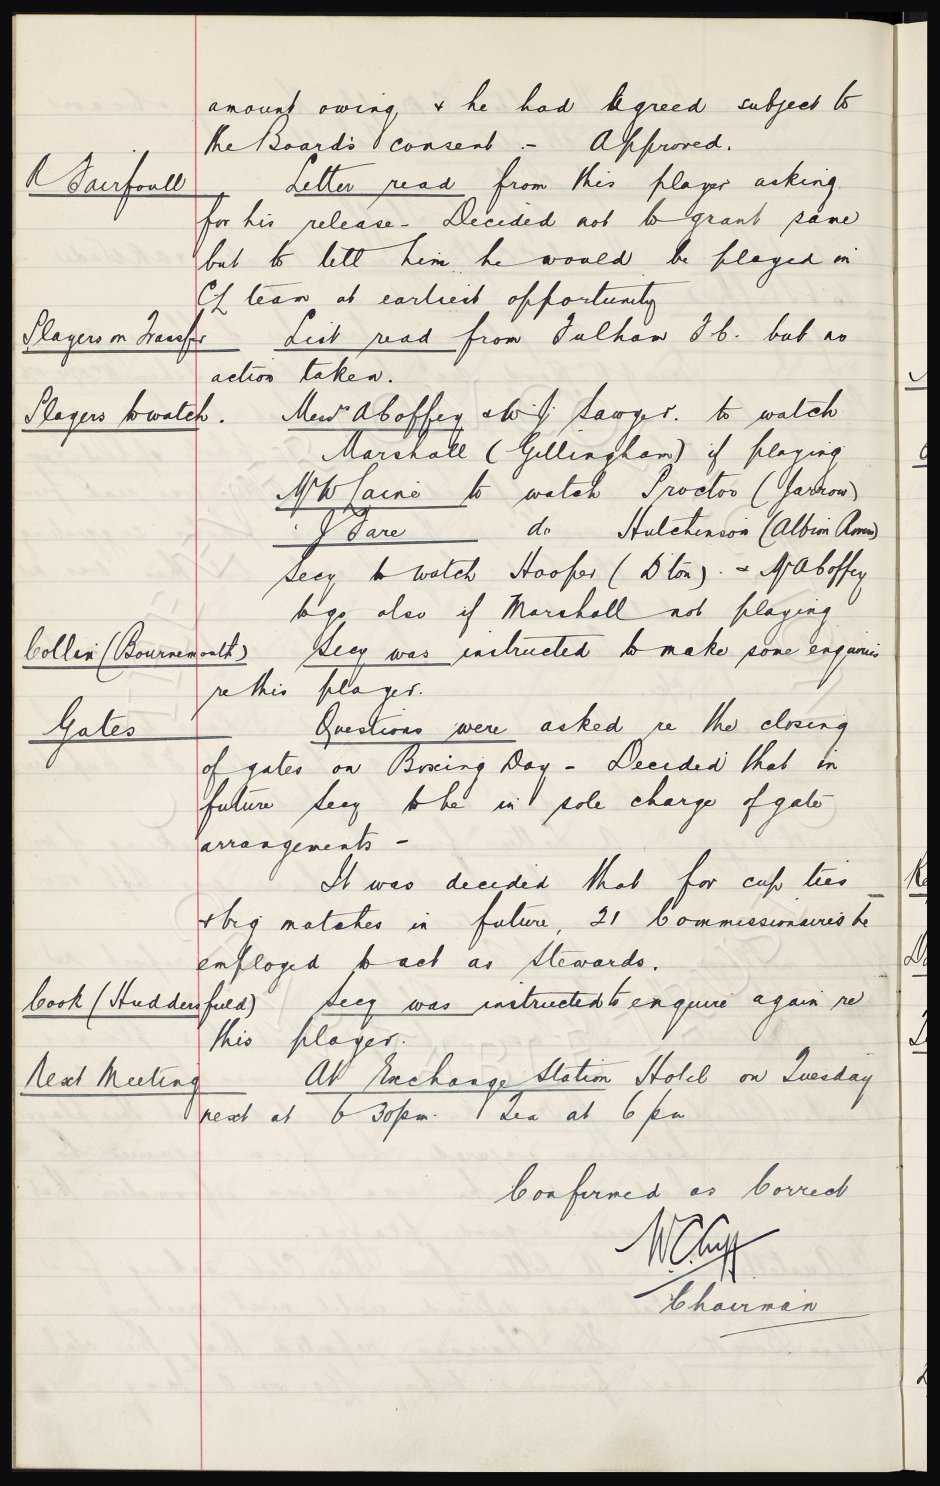 amount owing, & he had agreed subject to
the Board's consent .- Approved.
Fairfoull Letter read from this player asking
for his release - Decided not to grant same
but to tell him he would be played in
CL team at earliest opportunity
Players on Transfer List read from Fulham F.C. but no
action taken.
Players to watch. Messrs A Coffey & W J Sawyer. to watch
Marshall (Gillingham) if playing
Mr W C to watch Proctor (Jarrow)
J Fare do Hutchinson (Albion Rovers)
Secy to watch Hooper (D'ton). - Mr A Coffey
to go also if Marshall not playing
Collin (Bournemouth) Secy was instructed to make some enquiries
re this player.
Gates Questions were asked re the closing
of gates on Boxing Day - Decided that in
future Secy to be in sole charge of gate
arrangements -
It was decided that for cup ties
& big matches in future, 21 Commissionaires be
employed to act as Stewards.
Cook (Huddersfield) Secy was instructed to enquire again re
this player.
Next Meeting At Exchange Station Hotel on Tuesday
next at 6 30pm. Tea at 6 pm
Confirmed as Correct
W.C. Cuff
Chairman